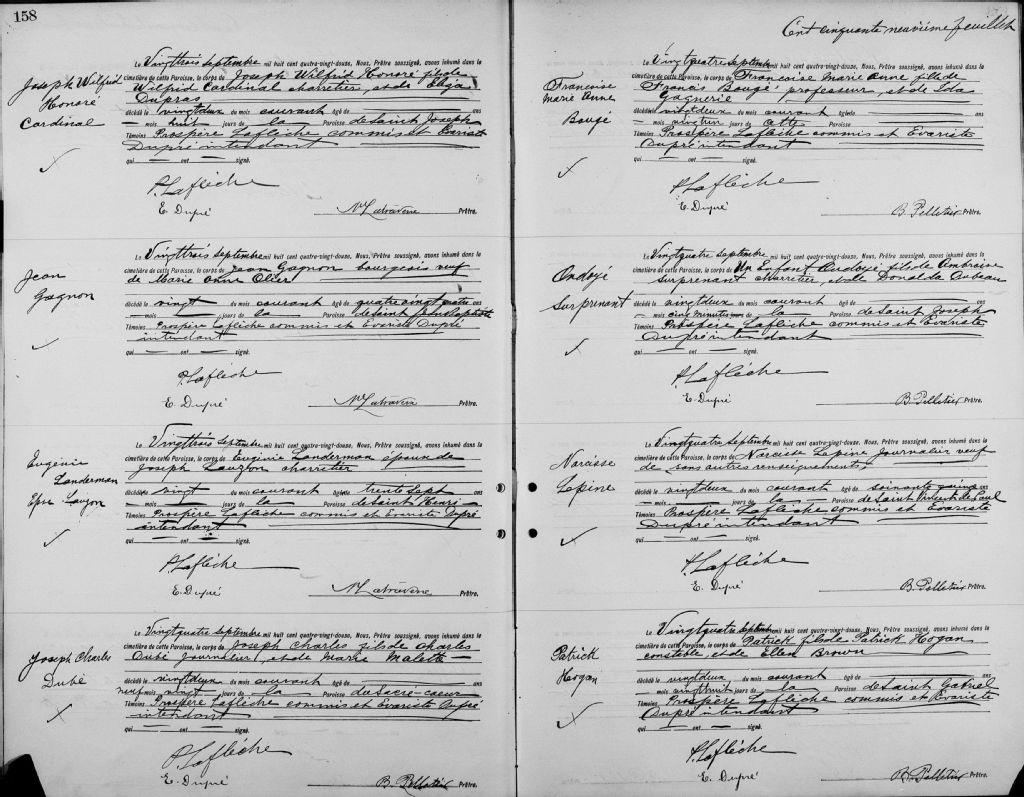 158
Joseph Wilfrid
Honoré
Cardinal
Le Vingttrois Septembre mil huit cent quatre-vingt-douze, Nous, Prêtre soussigné, avons inhumé dans le
cimetière de cette Paroisse, le corps de Joseph Wilfrid Honoré fils de
Wilfrid Cardinal charretier, et de Eliza
Dupras
décédé le vingtdeux du mois courant âgé de ans
mois huit jours de la Paroisse de Saint Joseph
Témoins Prospère Laflèche commis et Evariste
Dupré intendant
qui — ont — signé.
P. Laflèche
E. Dupré Prêtre.
Jean
Gagnon
Le Vingttrois Septembre mil huit cent quatre-vingt-douze, Nous, Prêtre soussigné, avons inhumé dans le
cimetière de cette Paroisse, le corps de Jean Gagnon bourgeois veuf
de Marie Anne Olier
décédé le vingt du mois courant âgé de quatre vingt quatre ans
— mois — jours de la Paroisse de Saint Jean Baptiste
Témoins Prospère Laflèche commis et Evariste Dupré
intendant
qui — ont — signé.
P. Laflèche
E. Dupré Prêtre.
Eugenie
Landerman
Epse Lauzon
Le Vingttrois Septembre mil huit cent quatre-vingt-douze, Nous, Prêtre soussigné, avons inhumé dans le
cimetière de cette Paroisse, le corps de Eugénie Landerman épouse de
Joseph Lauzon charretier
décédée vingt du mois courant âgée de trente sept ans
— mois — jours de la Paroisse de Saint Henri
Témoins Prospère Laflèche commis et Evariste Dupré
intendant
qui — ont — signé.
P. Laflèche
E. Dupré Prêtre.
Joseph Charles
Dubé
Le Vingtquatre Septembre mil huit cent quatre-vingt-douze, Nous, Prêtre soussigné, avons inhumé dans le
cimetière de cette Paroisse, le corps de Joseph Charles fils de Charles
Dubé Journalier, et de Marie Malette
décédé le vingtdeux du mois courant âgé de ans
neuf mois vingt jours de la Paroisse du Sacré-coeur
Témoins Prospère Laflèche commis et Evariste Dupré
intendant
qui — ont — signé.
P. Laflèche
E. Dupré B. Pelletier Prêtre.
Cent cinquante neuvième feuillet
Francoise
Marie Anne
Bougé
Le Vingtquatre Septembre mil huit cent quatre-vingt-douze, Nous, Prêtre soussigné, avons inhumé dans le
cimetière de cette Paroisse, le corps de Francoise Marie Anne fille de
Francis Bougé professeur, et de Ida
Gagnerie
décédée vingtdeux du mois courant âgée de ans
— mois jours de cette Paroisse
Témoins Prospère Laflèche commis et Evariste
Dupré intendant
qui — ont — signé.
P. Laflèche
E. Dupré B. Pelletier Prêtre.
Ondoyé
Surprenant
Le Vingtquatre Septembre mil huit cent quatre-vingt-douze, Nous, Prêtre soussigné, avons inhumé dans le
cimetière de cette Paroisse, le corps de Un Enfant Ondoyé fils de Ambroise
Surprenant charretier, et de Donalda
décédé le vingtdeux du mois courant âgé de ans
— mois cinq minutes jours de la Paroisse de Saint Joseph
Témoins Prospère Laflèche commis et Evariste
Dupré intendant
qui — ont — signé.
P. Laflèche
E. Dupré B. Pelletier Prêtre.
Narcisse
Lepine
Le Vingtquatre Septembre mil huit cent quatre-vingt-douze, Nous, Prêtre soussigné, avons inhumé dans le
cimetière de cette Paroisse, le corps de Narcisse Lepine Journalier veuf
de sans autres renseignements
décédé le vingtdeux du mois courant âgé de soixante quinze ans
— mois — jours de la Paroisse de Saint Vincent de Paul
Témoins Prospère Laflèche commis et Evariste
Dupré intendant
qui — ont — signé.
P. Laflèche
E. Dupré B. Pelletier Prêtre.
Patrick
Hogan
Le Vingtquatre Septembre mil huit cent quatre-vingt-douze, Nous, Prêtre soussigné, avons inhumé dans le
cimetière de cette Paroisse, le corps de Patrick fils de Patrick Hogan
constable, et de Ellen Brown
décédé le vingtdeux du mois courant âgé de ans
— mois vingthuit jours de la Paroisse de Saint Gabriel
Témoins Prospère Laflèche commis et Evariste
Dupré intendant
qui — ont — signé.
P. Laflèche
E. Dupré B. Pelletier Prêtre.